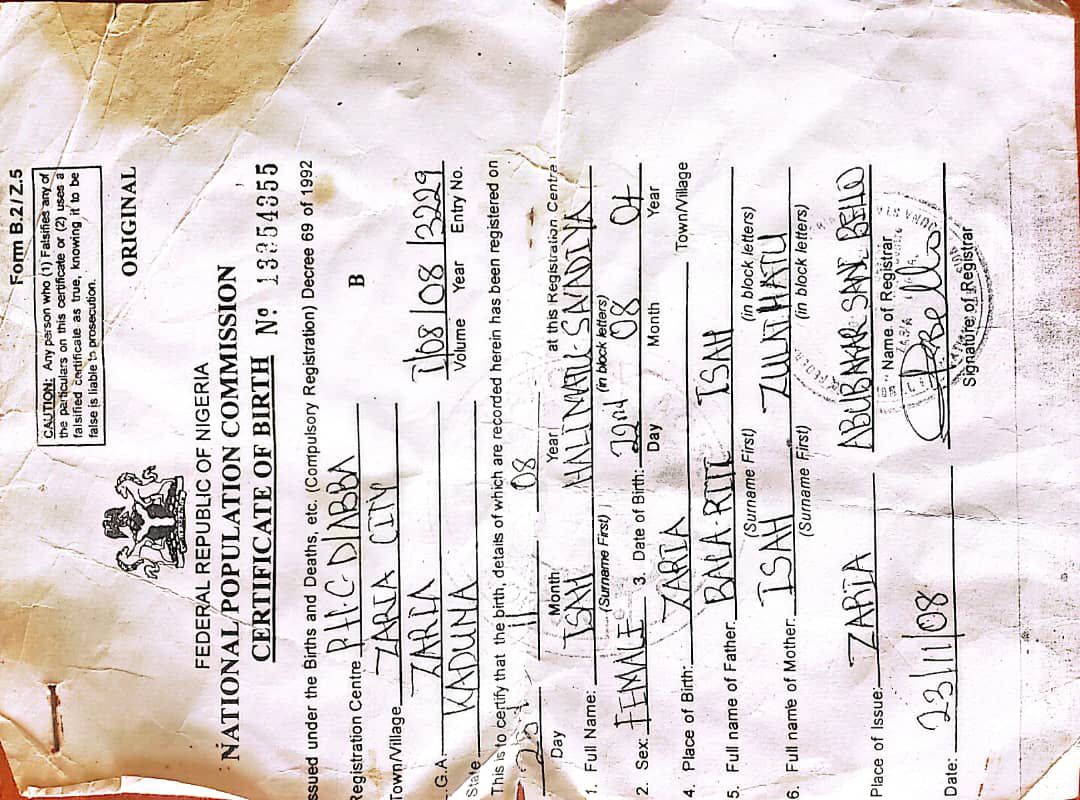 Form B.2/Z.5
CAUTION: Any person who (1) Falsifies any of
the particulars on this certificate or (2) uses a
falsified certificate as true, knowing it to be
false is liable to prosecution.
ORIGINAL
FEDERAL REPUBLIC OF NIGERIA
NATIONAL POPULATION COMMISSION
CERTIFICATE OF BIRTH Nº 1354355
ssued under the Births and Deaths, etc. (Compulsory Registration) Decree 69 of 1992
Registration Centre P.H.C DIABBA B
Town/Village ZARIA CITY
L.G.A. ZARIA
State KADUNA 1/08/08/3229
Volume Year Entry No.
This is to certify that the birth, details of which are recorded herein has been registered on
11 08 at this Registration Centre
Day Month Year
1. Full Name: ISAH HALIMATU-SAADIYA
(Surname First) (in block letters)
2. Sex: FEMALE 3. Date of Birth: 22nd 08 04
Day Month Year
4. Place of Birth: ZARIA Town/Village
5. Full name of Father: BALA-RITI ISAH
(Surname First) (in block letters)
6. Full name of Mother: ISAH ZULAIHATU
(Surname First) (in block letters)
Place of Issue: ZARIA ABUBAKAR SANI BELLO
Name of Registrar
Date: 23/11/08
Signature of Registrar